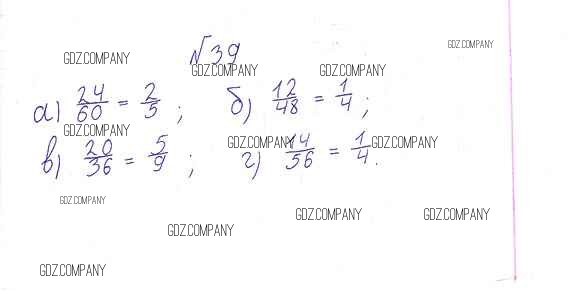 GDZ.COMPANY √39 GDZ.COMPANY
GDZ.COMPANY GDZ.COMPANY
а) 24/60 = 2/5 ; б) 12/48 = 1/4 ;
GDZ.COMPANY GDZ.COMPANY GDZ.COMPANY
в) 20/36 = 5/9 ; г) 14/56 = 1/4 .
GDZ.COMPANY
GDZ.COMPANY GDZ.COMPANY
GDZ.COMPANY
GDZ.COMPANY